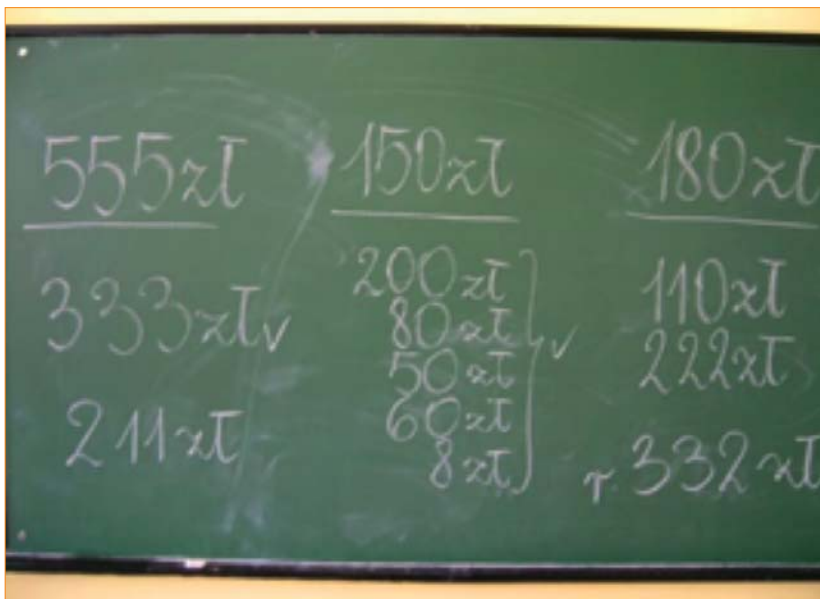 555zł
333zł✓
211zł
150zł
200zł
80zł
50zł
60zł
8zł
✓
180zł
110zł
222zł
r. 332zł